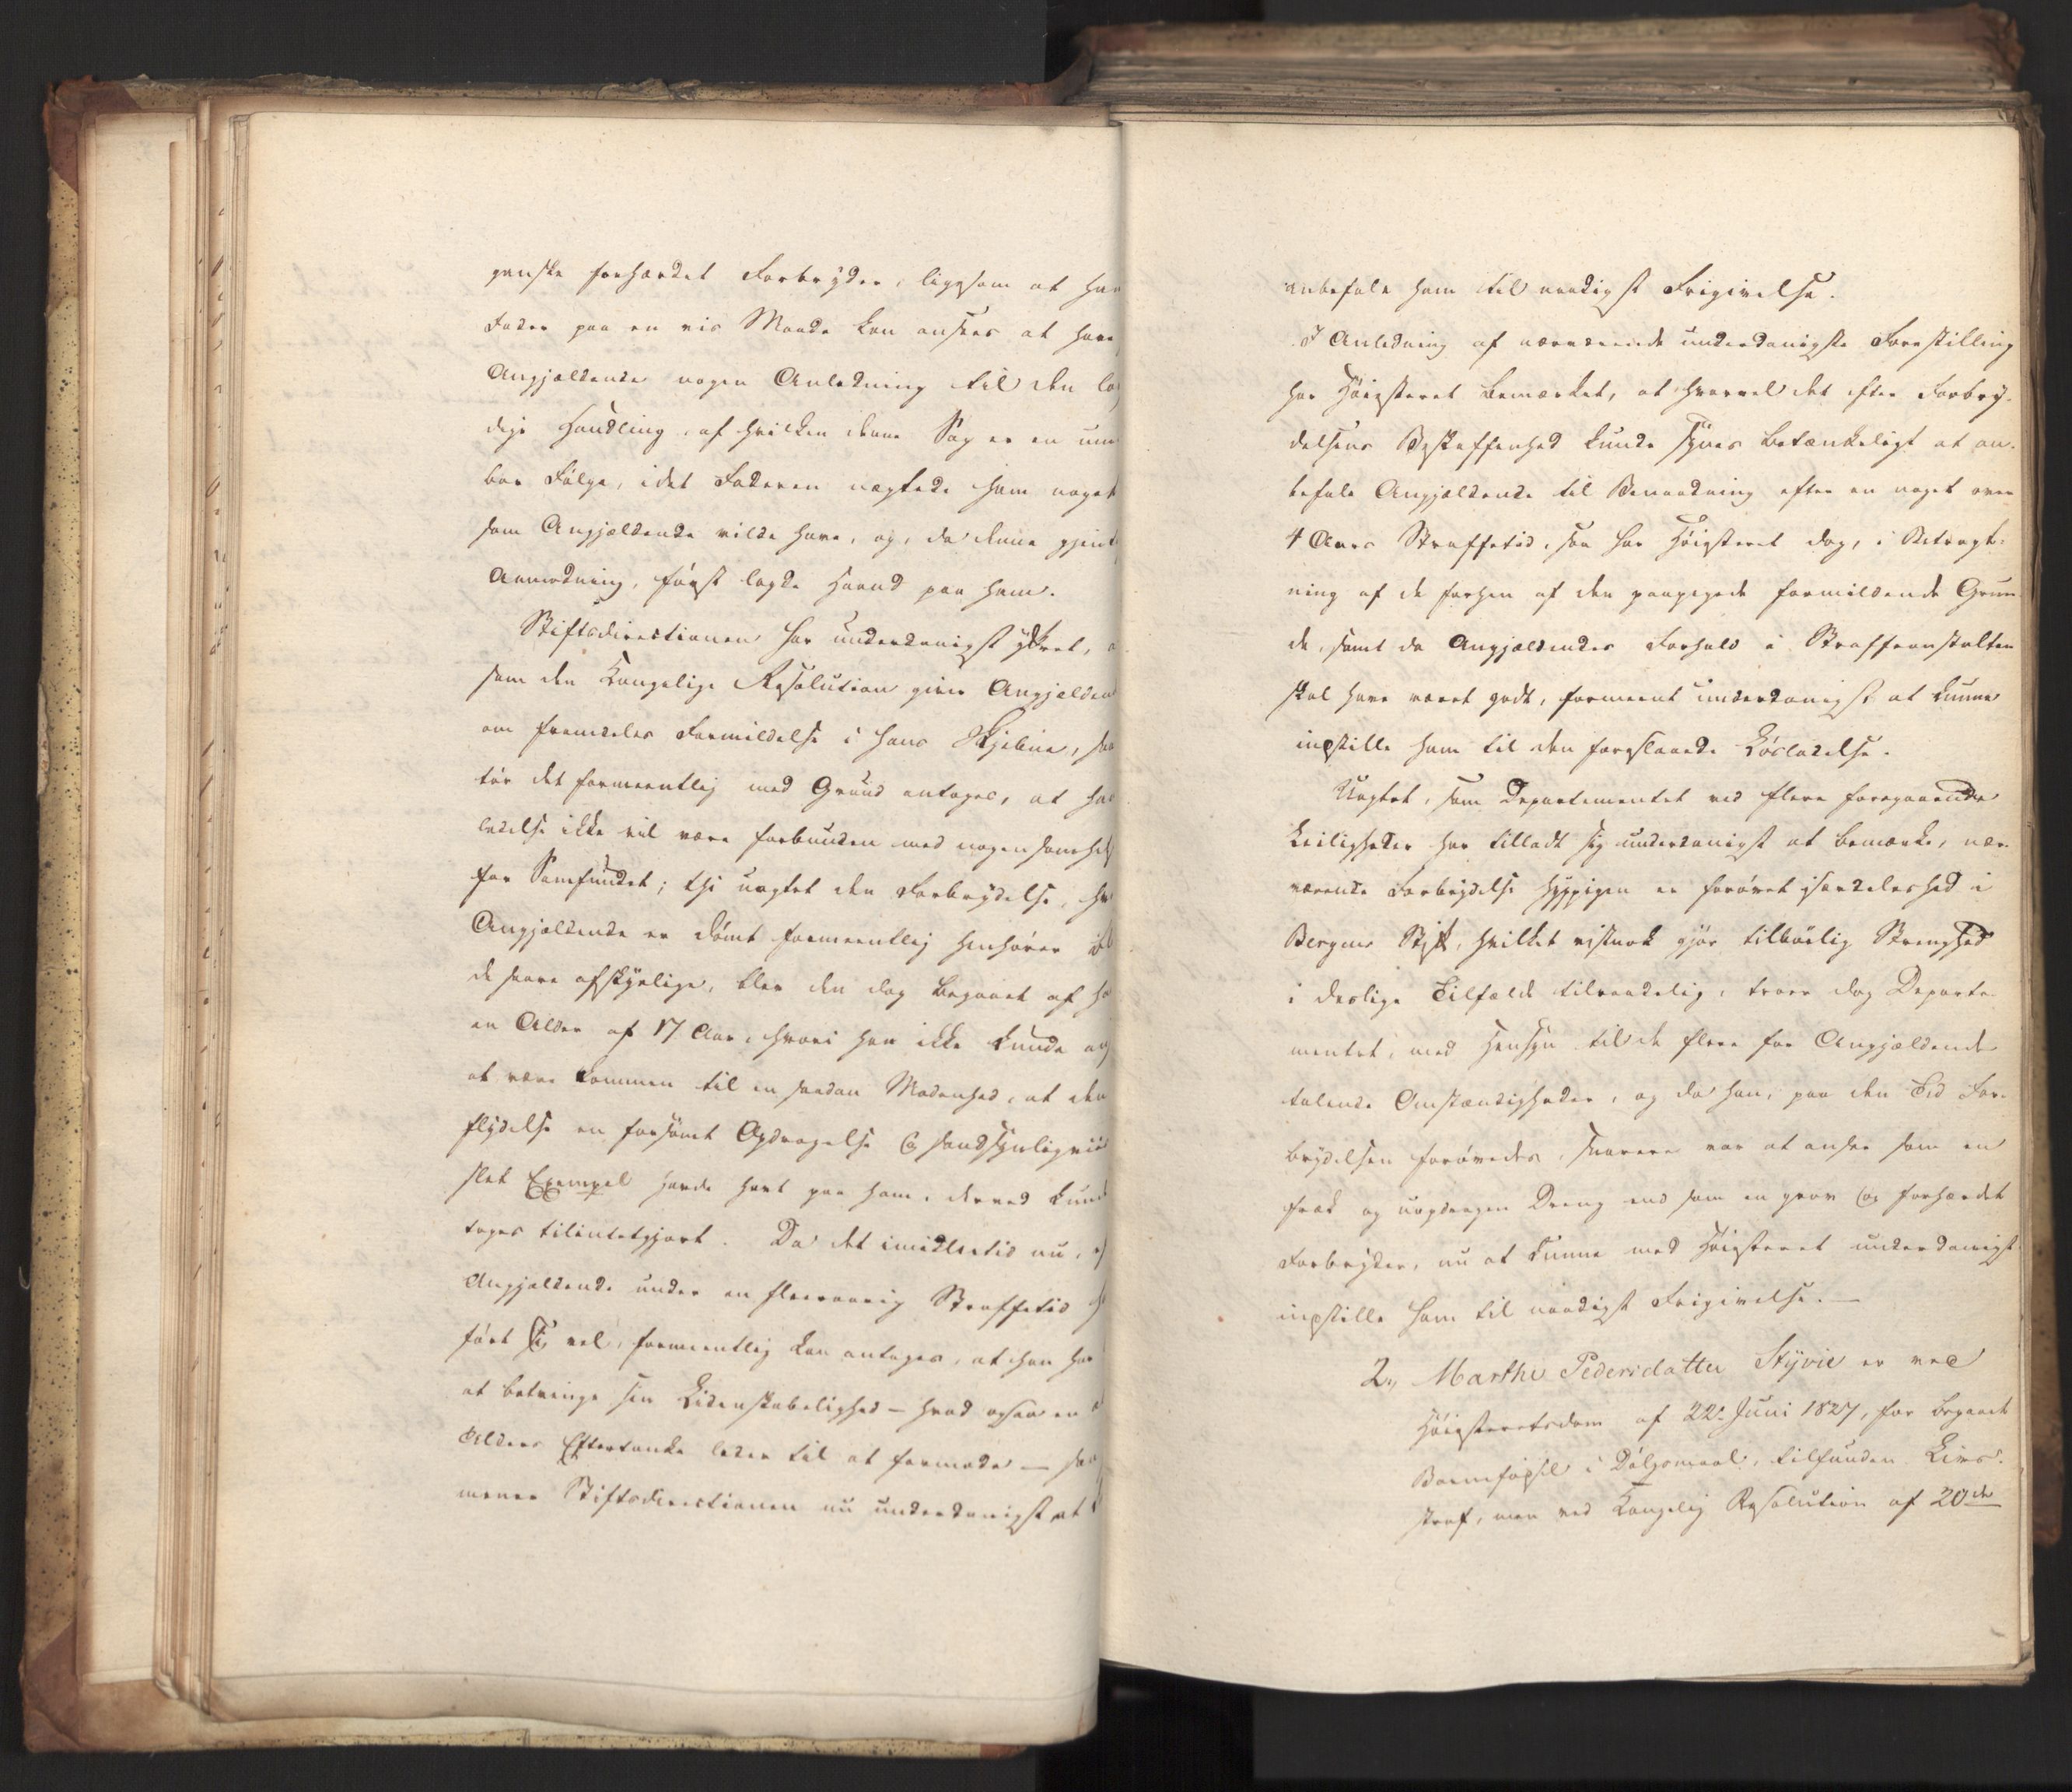 ganske forhærdet Forbryder, ligesom at han
Fader paa en vis Maade kan ansees at have
Angjældende nogen Anledning til den la
dige Handling, af hvilken denne Sag er en um
bar Følge, idet Faderen nægtede ham noget
som Angjældende vilde have, og, da denne gjent
Anmodning, først lagde Haand paa ham.
Stiftsdirectionen har underdanigst yttret, a
som den Kongelige Resolution giver Angjælden
om fremdeles Formildelse i hans Skjebne, saa
tør det formeentlig med Grund antages, at ha
ladelse ikke vil være forbunden med nogen somhelst
for Samfundet; thi uagtet den Forbrydelse, hv
Angjældende er dømt formeentlig henhører
de svare afskyelige, blev den dog begaaet af ha
en Alder af 17 Aar, hvori han ikke kunde an
at være kommen til en saadan Modenhed, at den
flydelse en forsømt Opdragelse og sandsynligviis
slet Exempel havde havt paa ham, derved kund
tages tilintetgjort. Da det imidlertid nu,
Angjældende under en fleeraarig Straffetid h
ført sig vel, formeentlig kan antages, at han har
at betvinge sin Lidenskabelighed – hvad ogsaa en
Alders Eftertanke leder til at formode – saa
mener Stiftsdirectionen nu underdanigst at
anbefale ham til naadigst Frigivelse.
I Anledning af nærværende underdanigste Forestilling
har Høiesteret bemærket, at hvorvel det efter Forbry-
delsens Beskaffenhed kunde synes betænkeligt at an-
befale Angjældende til Benaadning efter en noget over
4 Aars Straffetid, saa har Høiesteret dog, i Betragt-
ning af de forhen af den paapegede formildende Grun-
de, samt da Angjældendes Forhold i Straffeanstalten
skal have været godt, formeent underdanigst at kunne
indstille ham til den foreslaaede Løsladelse.
Uagtet, som Departementet ved flere foregaaende
Leiligheder har tilladt sig underdanigst at bemærke, nær-
værende Forbrydelse hyppigen er forøvet isærdeleshed i
Bergens Stift, hvilket vistnok gjør tilbørlig Strenghed
i deslige Tilfælde tilraadelig, troer dog Departe-
mentet, med Hensyn til de flere for Angjældende
talende Omstændigheder, og da han, paa den Tid For-
brydelsen forøvedes, snarere var at ansee som en
fræk og uopdragen Dreng end som en grov og forhærdet
Forbryder, nu at kunne med Høiesteret underdanigst
indstille ham til naadigst Frigivelse. —
2., Marthe Pedersdatter Styvie er ved
Høiesteretsdom af 22de Juni 1827, for begaaet
Barnefødsel i Dølgsmaal, tilfunden Livs-
straf, men ved Kongelig Resolution af 20de